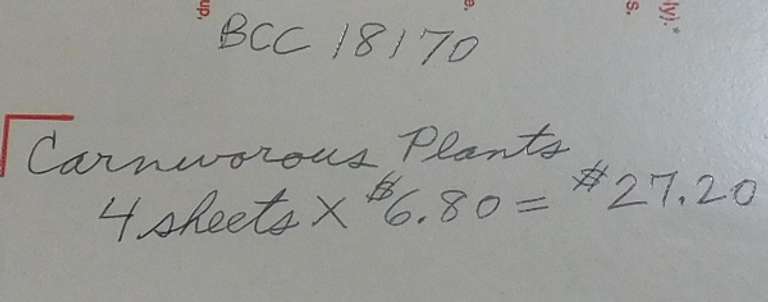 up.
e.
s.
ly).*
BCC 18170
Carnivorous Plants
4 sheets X $6.80 = $27.20